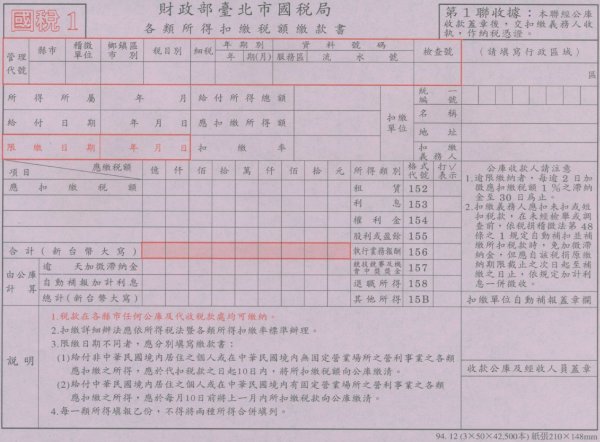 國稅 1
財政部臺北市國稅局
各類所得扣繳稅額繳款書
第1聯收據：本聯經公庫
收款蓋章後，交扣繳義務人收
執，作納稅憑證。
管理代號
縣市
稽徵單位
鄉鎮區市別
稅目別
細稅
年期別
年 期(月)
資料號碼
服務區
流水號
檢查號
(請填寫行政區域)
所得所屬 年 月
給付所得總額
給付日期 年 月 日
應扣繳稅額
限繳日期 年 月 日
扣繳率
扣繳單位
統一編號
名稱
地址
扣繳義務人
項目
應繳稅額
億 仟 佰 拾 萬 仟 佰 拾 元
所得類別
格式代號
打ˇ表示
應扣繳稅額
租賃 152
利息 153
權利金 154
股利或盈餘 155
合計(新台幣大寫)
執行業務報酬 156
競技競賽及機會中獎獎金 157
退職所得 158
其他所得 15B
由公庫計算
逾 天加徵滯納金
自動補報加計利息
總計(新台幣大寫)
公庫收款人請注意
1.逾限繳納者，每逾2日加
徵應扣繳稅額1%之滯納
金至30日為止。
2.扣繳義務人應扣未扣或短
扣稅款，在未經檢舉或調
查前，依稅捐稽徵法第48
條之1規定自動補扣並補
繳所扣稅款時，免加徵滯
納金，但應自該稅捐原繳
納期限截止之次日起至補
繳之日止，依規定加計利
息一併徵收。
扣繳單位自動補報蓋章欄
收款公庫及經收人員蓋章
說明
1.稅款在各縣市任何公庫及代收稅款處均可繳納。
2.扣繳詳細辦法應依所得稅法暨各類所得扣繳率標準辦理。
3.限繳日期不同者，應分別填寫繳款書：
(1)給付非中華民國境內居住之個人或在中華民國境內無固定營業場所之營利事業之各類
所得扣繳之所得，應於代扣稅款之日起10日內，將所扣繳稅款向公庫繳清。
(2)給付中華民國境內居住之個人或在中華民國境內有固定營業場所之營利事業之各類
應扣繳之所得，應於每月10日前將上一月內所扣繳稅款向公庫繳清。
4.每一類所得填報乙份，不得將兩種所得合併填列。
94. 12 (3×50×42,500本) 紙張210×148mm